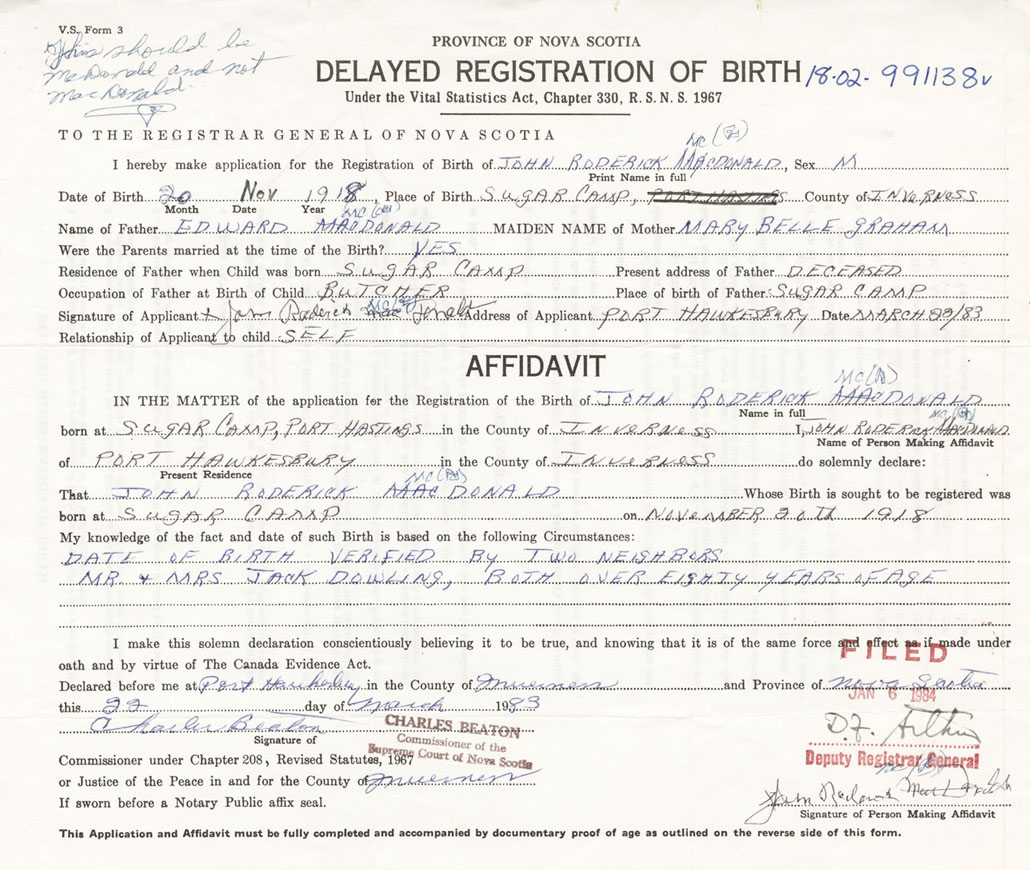 V.S. Form 3
This should be
McDonald and not
MacDonald.
PROVINCE OF NOVA SCOTIA
DELAYED REGISTRATION OF BIRTH 18-02-991138
Under the Vital Statistics Act, Chapter 330, R.S.N.S. 1967
TO THE REGISTRAR GENERAL OF NOVA SCOTIA
Mc
I hereby make application for the Registration of Birth of JOHN RODERICK MACDONALD, Sex M
Print Name in full
Date of Birth 20 Nov 1918, Place of Birth SUGAR CAMP, PORT HASTINGS County of INVERNESS
Month Date Year Mc
Name of Father EDWARD MACDONALD MAIDEN NAME of Mother MARY BELLE GRAHAM
Were the Parents married at the time of the Birth? YES
Residence of Father when Child was born SUGAR CAMP Present address of Father DECEASED
Occupation of Father at Birth of Child BUTCHER Place of birth of Father SUGAR CAMP
Mc
Signature of Applicant x John Roderick MacDonald Address of Applicant PORT HAWKESBURY Date MARCH 22/83
Relationship of Applicant to child SELF
AFFIDAVIT
Mc
IN THE MATTER of the application for the Registration of the Birth of JOHN RODERICK MACDONALD
Name in full Mc
born at SUGAR CAMP, PORT HASTINGS in the County of INVERNESS I, JOHN RODERICK MACDONALD
Name of Person Making Affidavit
of PORT HAWKESBURY in the County of INVERNESS do solemnly declare:
Present Residence Mc
That JOHN RODERICK MACDONALD Whose Birth is sought to be registered was
born at SUGAR CAMP on NOVEMBER 20th 1918
My knowledge of the fact and date of such Birth is based on the following Circumstances:
DATE OF BIRTH VERIFIED BY TWO NEIGHBORS
MR. & MRS JACK DOWLING, BOTH OVER EIGHTY YEARS OF AGE
I make this solemn declaration conscientiously believing it to be true, and knowing that it is of the same force and effect as if made under
oath and by virtue of The Canada Evidence Act.
FILED
Declared before me at Port Hawkesbury in the County of Inverness and Province of Nova Scotia
JAN 6 1984
this 22 day of March 1983
Charles Beaton
CHARLES BEATON
Commissioner of the
Supreme Court of Nova Scotia
Signature of
Commissioner under Chapter 208, Revised Statutes, 1967
Deputy Registrar General
Mc
or Justice of the Peace in and for the County of Inverness
John Roderick MacDonald
If sworn before a Notary Public affix seal.
Signature of Person Making Affidavit
This Application and Affidavit must be fully completed and accompanied by documentary proof of age as outlined on the reverse side of this form.